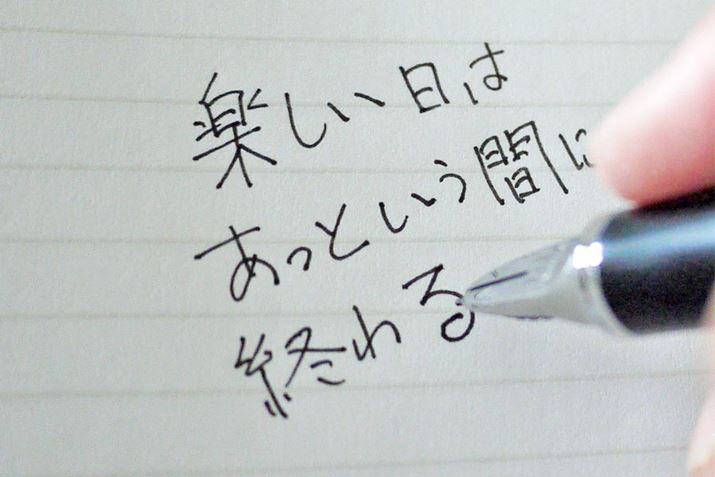 楽しい日は
あっという間に
終われる